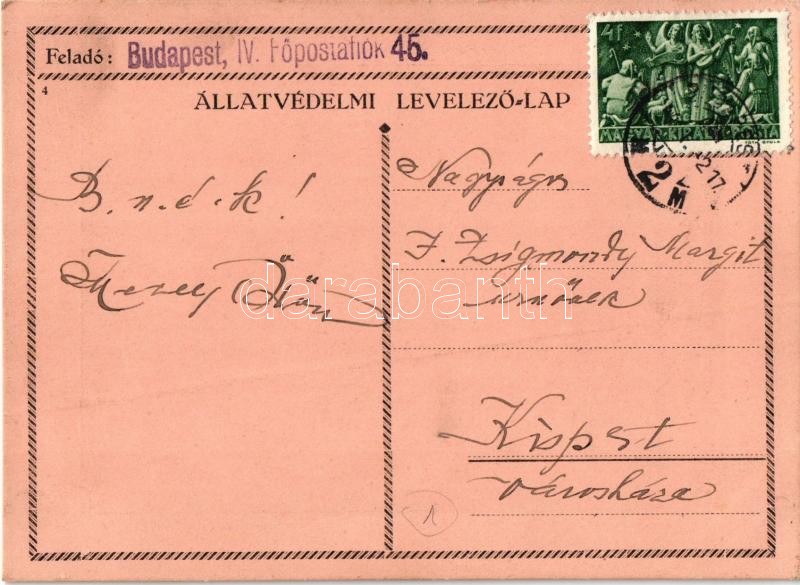 Feladó: Budapest, IV. Főpostafiók 45.
4f
MAGYAR KIRÁLYI POSTA
4
ÁLLATVÉDELMI LEVELEZŐ-LAP
B. n. é. k!
Nagyságos
F. Zsigmondy Margit
úrnőnek
Kispest
Városháza
darabanth
1